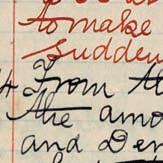 to make
sudden
4 From th
the amo
and Den